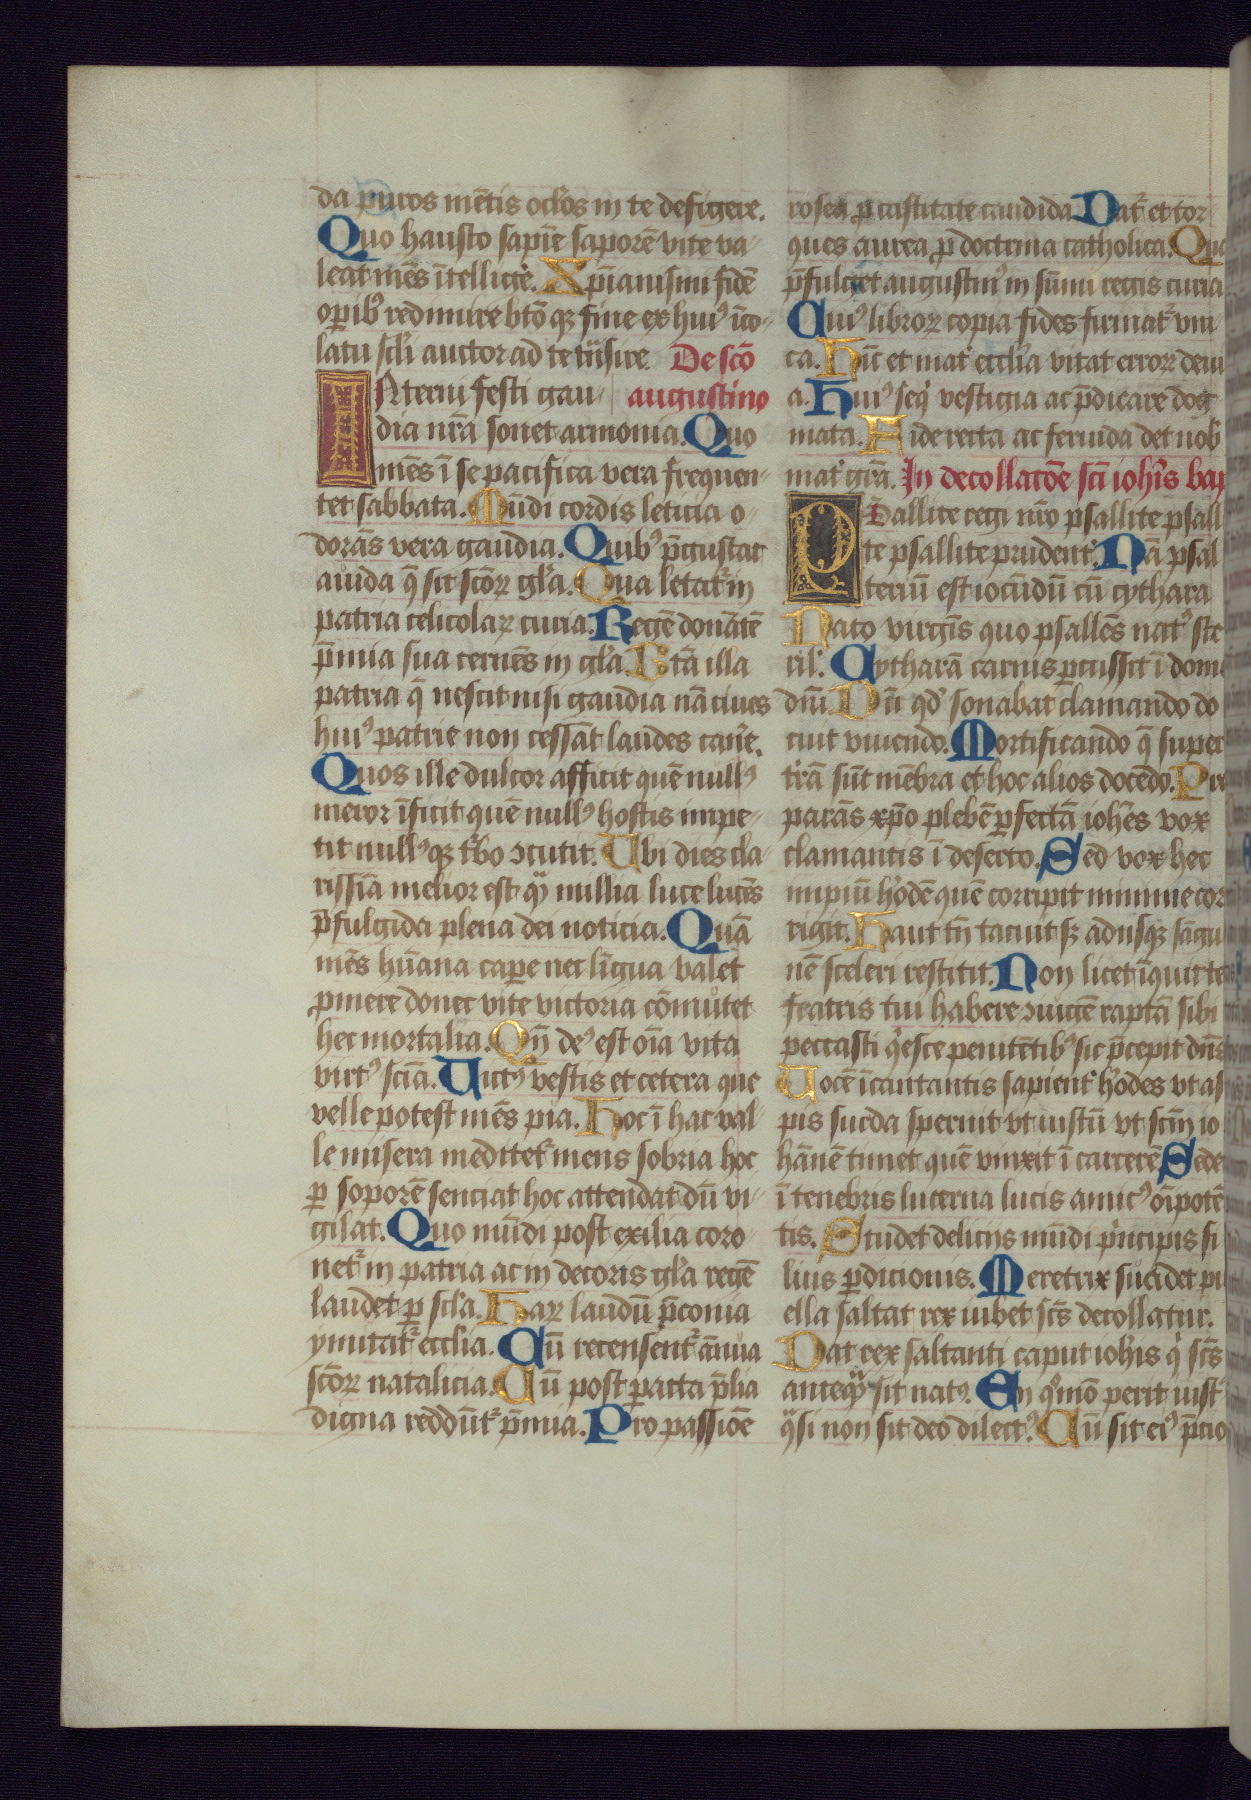 da puros mētis oclōs in te defigere.
Quo hausto sapīe saporē vite va-
leat mēs ītellicte. Xp̄ianismi fidē
opib9 redimire btō qꝫ fine ex hui9 īco-
latu scl̄i auctor ad te trāsire. De scō
INterni festi gau- augustino
dia nr̄a sonet armonia. Quo
mēs ī se pacifica vera frequen-
tet sabbata. Mūdi cordis leticia o-
dorās vera gaudia. Quib9 p̄gustat
auida q̄ sit scōꝝ gl̄a. Qua letat᷑ in
patria celicolaꝝ curia. Regē donātē
p̄mia sua cernēs in gl̄a. Btā illa
patria q̄ nescit nisi gaudia nā ciues
hui9 patrie non cessāt laudes canē̄.
Quos ille dulcor afficit quē null9
meror īficit quē null9 hostis impe-
tit null9qꝫ t᷑bo ꝯcutit. Ubi dies cla-
rissīa melior est qͣ millia luce lucēs
p̄fulgida plena dei noticia. Quā
mēs hūana capere nec līgua valet
ꝓmere donec vite victoria cōmutet
hec mortalia. Qn̄ de9 est oīa vita
virt9 scīa. Uict9 vestis et cetera que
velle potest mēs pia. Hoc ī hac val-
le misera meditet᷑ mens sobria hoc
ꝑ soporē senciat hoc attendat dū vi-
gilat. Quo mūdi post exilia coro-
net᷑ in patria ac in decoris gl̄a regē
laudet ꝑ scl̄a. Haꝝ laudū p̄conia
ymitat᷑ eccl̄ia. Cū recensent᷑ ānua
scōꝝ natalicia. Cū post ꝑacta p̄lia
digna reddūt᷑ p̄mia. Pro passiōe
rosea ꝓ castitate candida. Dat᷑ et tor
ques aurea ꝓ doctrina catholica. Qua
p̄fulget augustin9 in sūmi regis curia
Cui9 libroꝝ copia fides firmat᷑ vni
ca. Hīc et mat̉ eccl̄ia vitat erroꝝ deui
a. Hui9 seq̉ vestigia ac p̄dicare dog
mata. Fide recta ac feruida det nob̉
mat̉ gr̄a. In decollatōe sc̄i ioh̄is bap
PSallite regi nr̄o psallite psalli
te psallite prudent̉. Nā psal
teriū est iocūdū cū cythara
Nato virgīs quo psallēs nat9 ste
ril̉. Cytharā carnis ꝑcussit ī domo
dn̄i. Dn̄i qd̉ sonabat clamando do
cuit viuendo. Mortificando q̄ super
t̉rā sūt mēbra et hoc alios docēdo. Pre
parās xp̄o plebē ꝑfectā ioh̄es vox
clamantis ī deserto. Sed vox hec
impiū h̉odē quē corripit minime cor
rigit. Haut tn̄ tacuit sꝫ adusqꝫ sāgui
nē sceleri restitit. Non licet īquit te
fratris tui habere ꝯiugē raptā sibi
peccasti q̉esce penitētib9 sic p̄cepit dn̄s
Uocē īcantantis sapient̉ h̉odes vt as
pis surda spernit vt iustū vt scm̄ io
hānē timet quē vinxit ī carcerē. Sedet
ī tenebris lucerna lucis amic9 oīpotē
tis. Studet delicijs mūdi p̉ncipis fi
lius ꝑdicionis. Meretrix suadet pu
ella saltat rex iubet scs̄ decollatur.
Dat rex saltanti caput ioh̄is q̉ scs̄
anteqͣ sit nat9. En qͦmō perit iust9
qͣsi non sit deo dilect9. Cū sit ei9 p̄cio